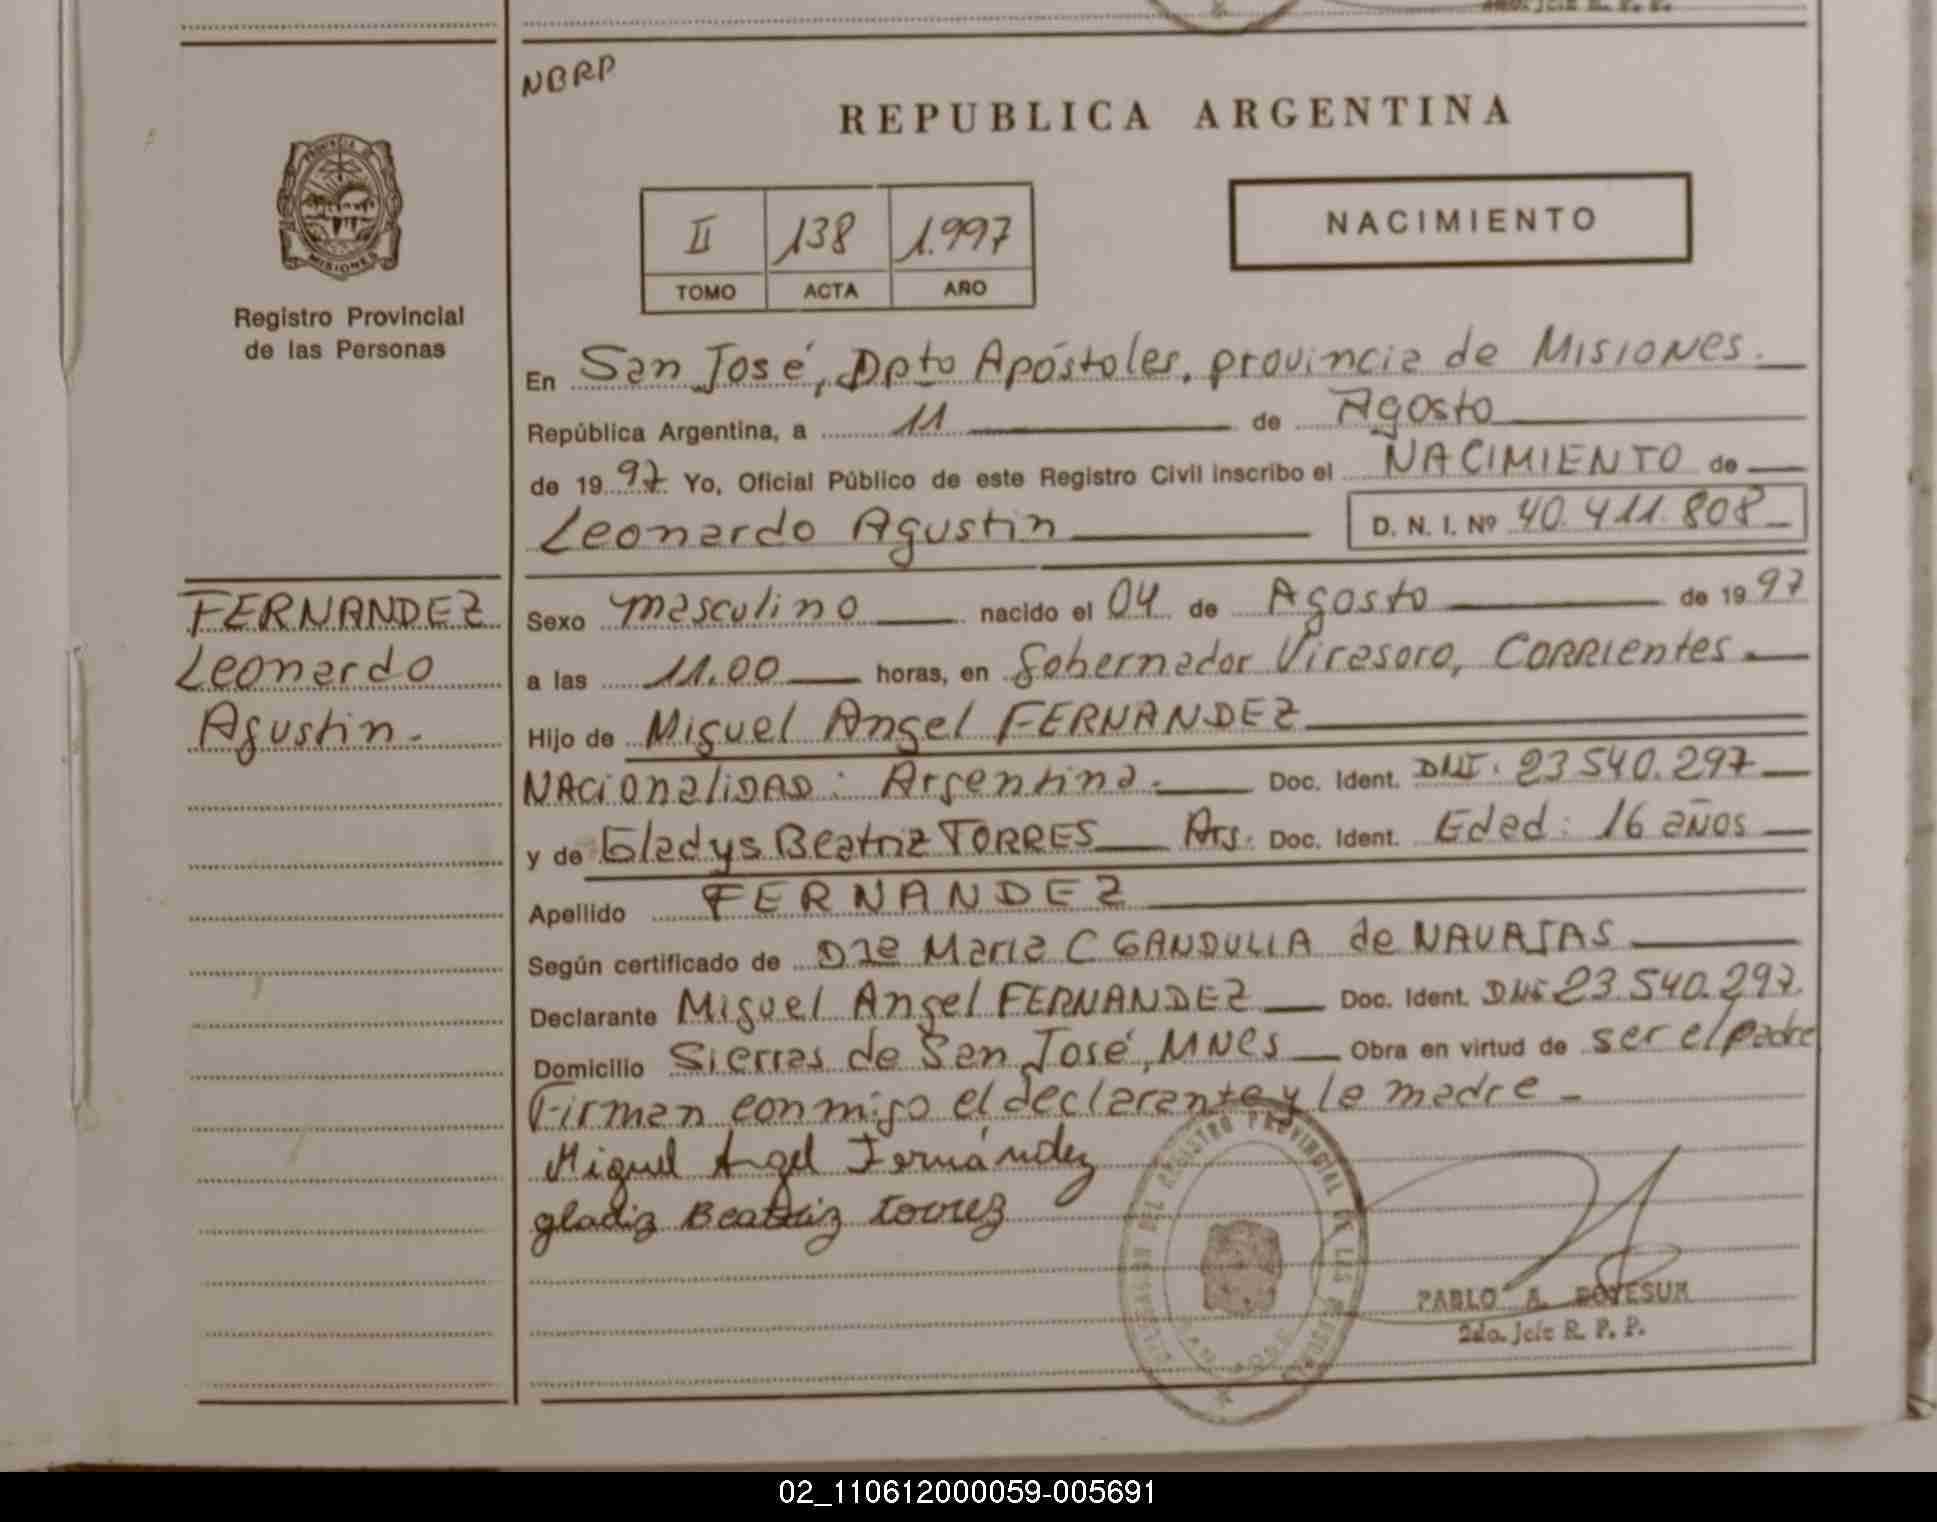 NBRP
REPUBLICA ARGENTINA
PROVINCIA DE
MISIONES
Registro Provincial
de las Personas
II 138 1.997
TOMO ACTA AÑO
NACIMIENTO
En San José, Dpto Apóstoles, provincia de MISIONES.
República Argentina, a 11 de Agosto
de 1997 Yo, Oficial Público de este Registro Civil inscribo el NACIMIENTO de
Leonardo Agustin D. N. I. Nº 40.411.808
FERNANDEZ
Leonardo
Agustin.
Sexo masculino nacido el 04 de Agosto de 1997
a las 11.00 horas, en Gobernador Virasoro, CORRIENTES
Hijo de Miguel Angel FERNANDEZ
NACIONALIDAD: Argentina. Doc. Ident. DNI: 23.540.297
y de Gladys Beatriz TORRES Arg. Doc. Ident. Edad: 16 años
Apellido FERNANDEZ
Según certificado de Dra Maria C GANDULLA de NAVAJAS
Declarante Miguel Angel FERNANDEZ Doc. Ident. DNI 23.540.297.
Domicilio Sierras de San José, MNES Obra en virtud de ser el padre
Firman conmigo el declarante y la madre
Miguel Angel Fernández
gladiz Beatriz torrez
DEL REGISTRO PROVINCIAL DE LAS PERSONAS
PABLO A.
2do. Jefe R. P. P.
02_110612000059-005691